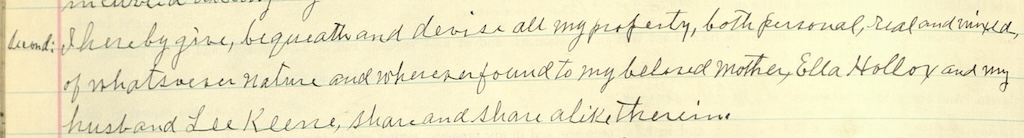 Second: I hereby give, bequeath and devise all my property, both personal, real and mixed,
of whatsoever nature and wherever found to my beloved mother, Ella Holloy and my
husband Lee Keene, share and share alike therein.